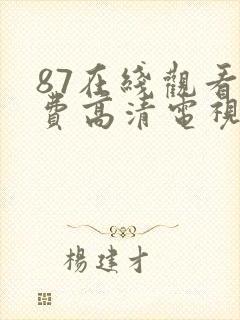 87在綫觀看
費高清電視
楊建才